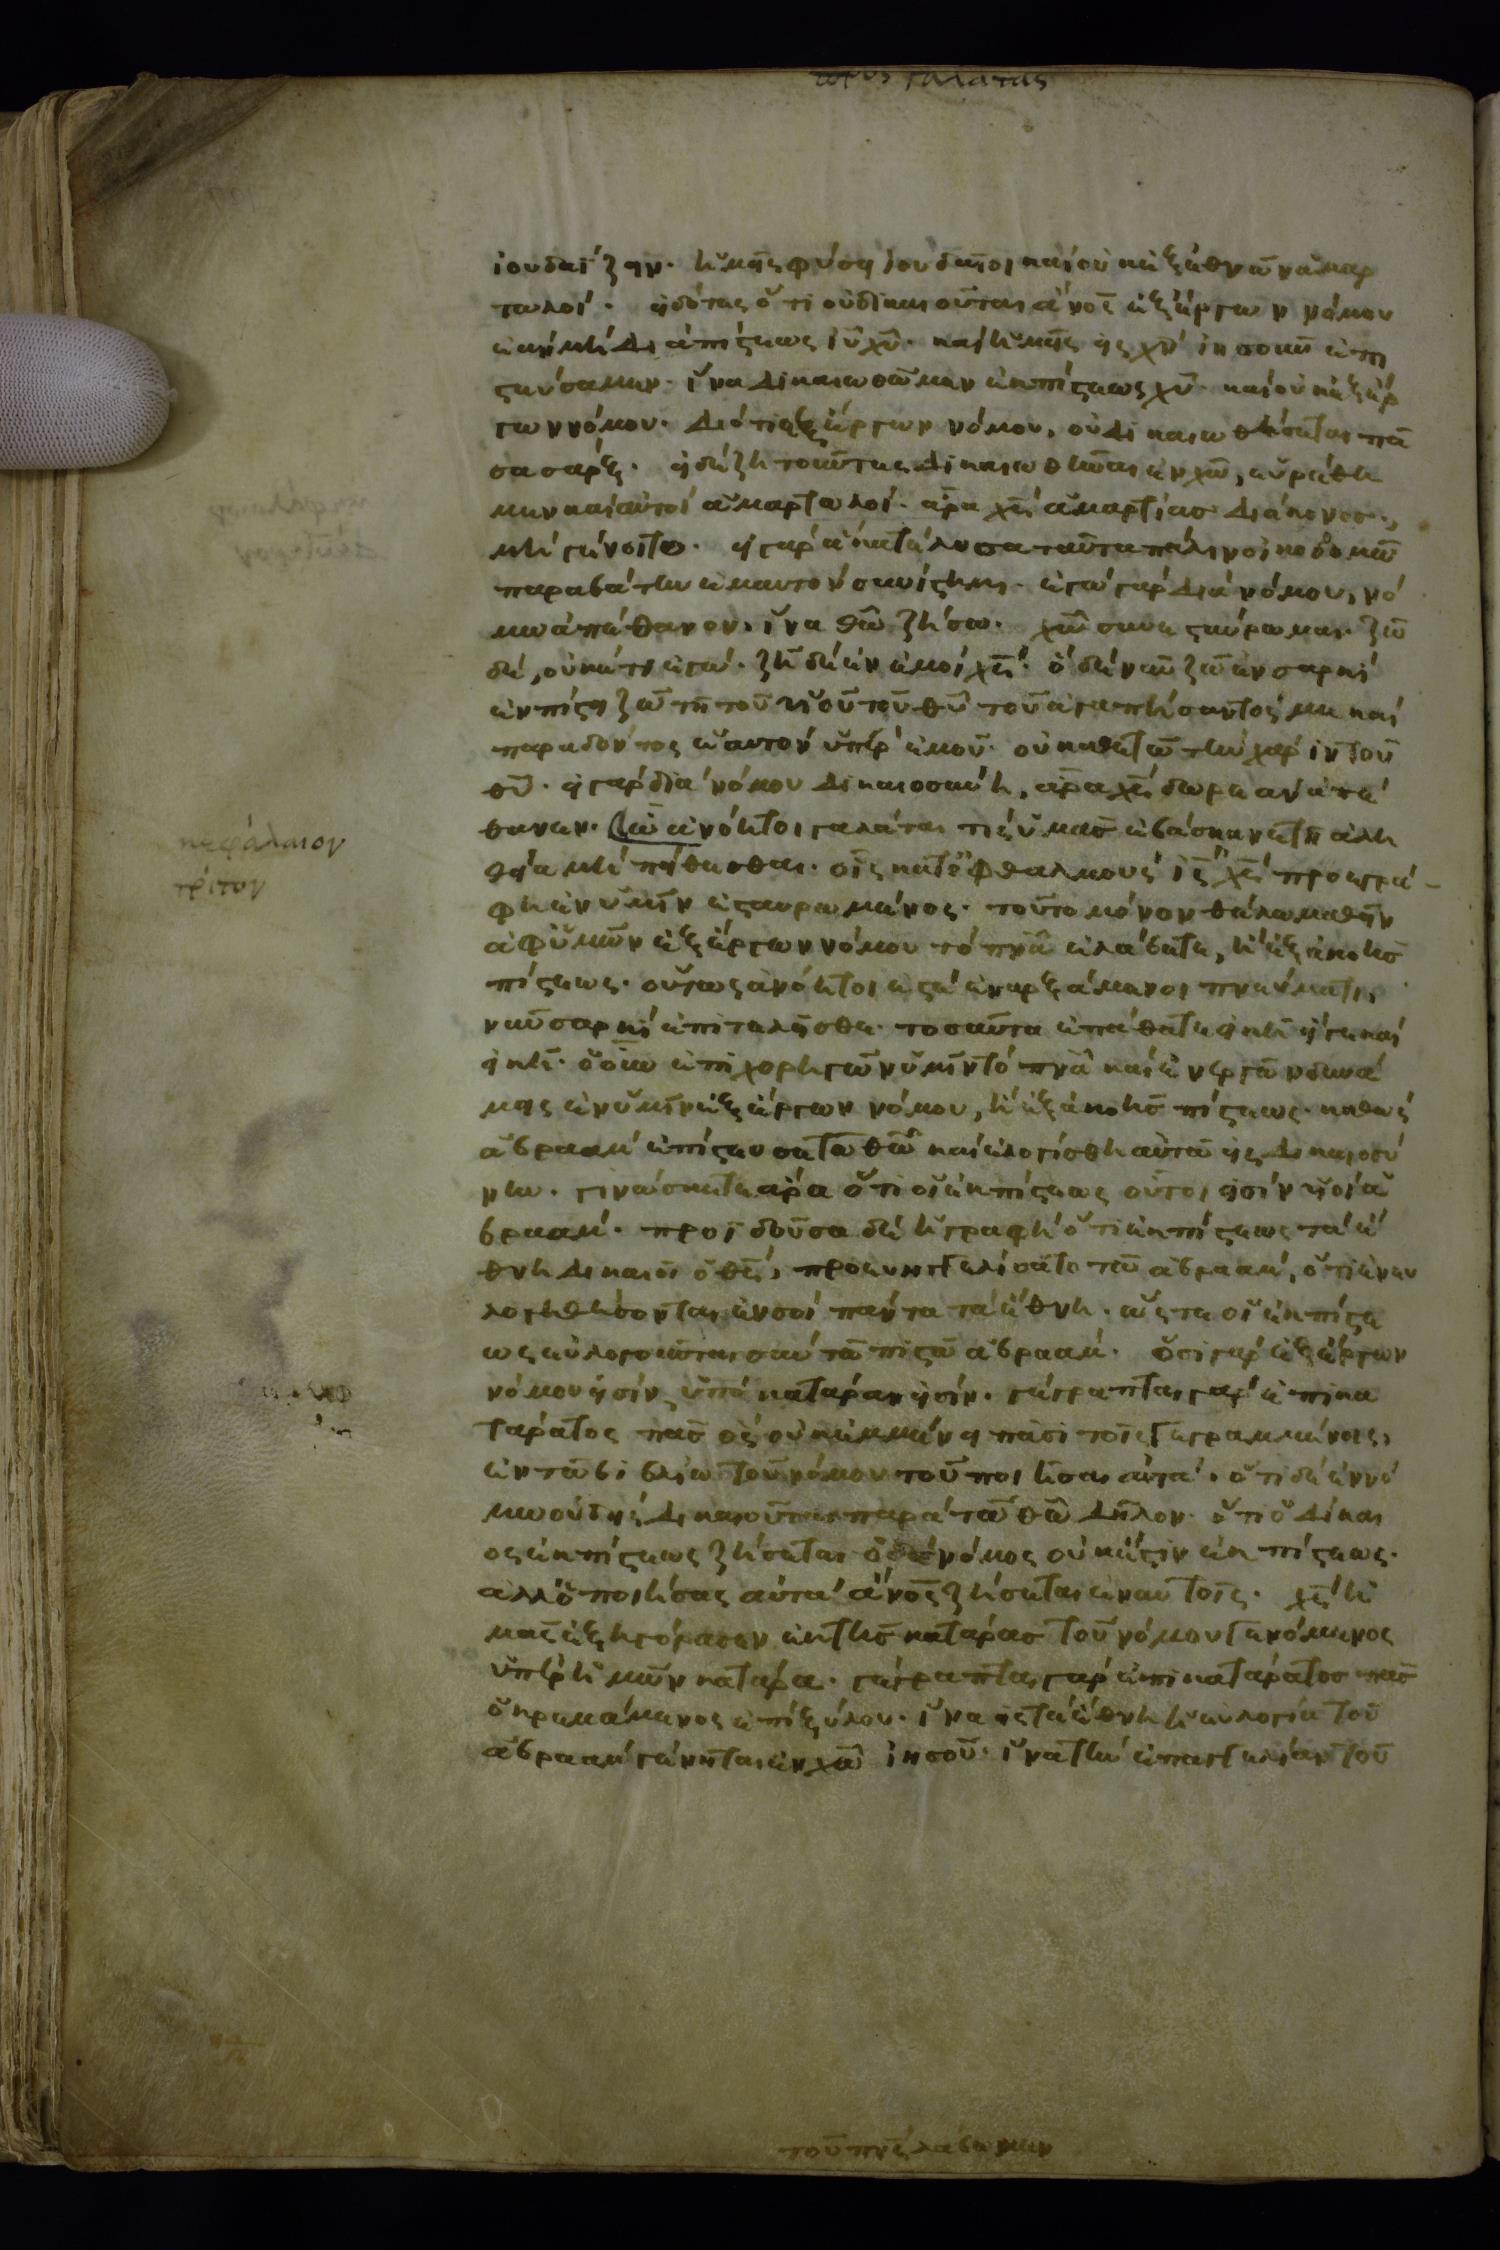 πρὸς γαλάτας
ἰουδαΐζειν· ἡμεῖς φύσει ἰουδαῖοι καὶ οὐκ ἐξ ἐθνῶν ἁμαρ
τωλοί· εἰδότες ὅτι οὐ δικαιοῦται ἄνος ἐξ ἔργων νόμου
ἐὰν μὴ διὰ πίστεως ιυ χυ· καὶ ἡμεῖς εἰς χν ἰησοῦν ἐπι
στεύσαμεν· ἵνα δικαιωθῶμεν ἐκ πίστεως χυ· καὶ οὐκ ἐξ ἔρ
γων νόμου· διότι ἐξ ἔργων νόμου, οὐ δικαιωθήσεται πᾶ
σα σάρξ· εἰ δὲ ζητοῦντες δικαιωθῆναι ἐν χω, εὑρέθη
μεν καὶ αὐτοὶ ἁμαρτωλοί· ἆρα χς ἁμαρτίας διάκονος·
μὴ γένοιτο· εἰ γὰρ ἃ κατέλυσα ταῦτα πάλιν οἰκοδομῶ
παραβάτην ἐμαυτὸν συνίστημι· ἐγὼ γὰρ διὰ νόμου, νό
μω ἀπέθανον, ἵνα θω ζήσω· χω συνεσταύρωμαι· ζῶ
δέ, οὐκέτι ἐγώ· ζῆ δὲ ἐν ἐμοὶ χς· ὃ δὲ νῦν ζῶ ἐν σαρκί
ἐν πίστει ζῶ τῆ τοῦ υἱοῦ τοῦ θυ τοῦ ἀγαπήσαντός με καὶ
παραδόντος ἑαυτὸν ὑπὲρ ἐμοῦ· οὐκ ἀθετῶ τὴν χάριν τοῦ
θυ· εἰ γὰρ διὰ νόμου δικαιοσύνη, ἆρα χς δωρεὰν ἀπέ
θανεν· ὦ ἀνόητοι γαλάται τίς ὑμᾶς ἐβάσκανε τῆ ἀλη
κεφάλαιον
θεία μὴ πείθεσθαι· οἷς κατ' ὀφθαλμοὺς ις χς προεγρά
τρίτον
φη ἐν ὑμῖν ἐσταυρωμένος· τοῦτο μόνον θέλω μαθεῖν
ἀφ' ὑμῶν ἐξ ἔργων νόμου τὸ πνα ἐλάβετε, ἢ ἐξ ἀκοῆς
πίστεως· οὕτως ἀνόητοί ἐστε ἐναρξάμενοι πνεύματι,
νῦν σαρκὶ ἐπιτελεῖσθε· τοσαῦτα ἐπάθετε εἰκῆ εἴγε καὶ
εἰκῆ· ὁ οὖν ἐπιχορηγῶν ὑμῖν τὸ πνα καὶ ἐνεργῶν δυνά
μεις ἐν ὑμῖν ἐξ ἔργων νόμου, ἢ ἐξ ἀκοῆς πίστεως· καθὼς
ἀβραὰμ ἐπίστευσε τῶ θω καὶ ἐλογίσθη αὐτῶ εἰς δικαιοσύ
νην· γινώσκετε ἄρα ὅτι οἱ ἐκ πίστεως οὗτοί εἰσιν υἱοὶ ἀ
βραάμ· προϊδοῦσα δὲ ἡ γραφὴ ὅτι ἐκ πίστεως τὰ ἔ
θνη δικαιοῖ ὁ θς, προευηγγελίσατο τῶ ἀβραάμ, ὅτι ἐνευ
λογηθήσονται ἐν σοὶ πάντα τὰ ἔθνη· ὥστε οἱ ἐκ πίστε
ως εὐλογοῦνται σὺν τῶ πιστῶ ἀβραάμ· ὅσοι γὰρ ἐξ ἔργων
νόμου εἰσίν, ὑπὸ κατάραν εἰσίν· γέγραπται γὰρ ἐπικα
τάρατος πᾶς ὃς οὐκ ἐμμένει πᾶσι τοῖς γεγραμμένοις,
ἐν τῶ βιβλίω τοῦ νόμου τοῦ ποιῆσαι αὐτά· ὅτι δὲ ἐν νό
μω οὐδεὶς δικαιοῦται παρὰ τῶ θω δῆλον· ὅτι ὁ δίκαι
ος ἐκ πίστεως ζήσεται ὁ δὲ νόμος οὐκ ἔστιν ἐκ πίστεως·
ἀλλ' ὁ ποιήσας αὐτὰ ἄνος ζήσεται ἐν αὐτοῖς· χς ἡ
μᾶς ἐξηγόρασεν ἐκ τῆς κατάρας τοῦ νόμου γενόμενος
ὑπὲρ ἡμῶν κατάρα· γέγραπται γὰρ ἐπικατάρατος πᾶς
ὁ κρεμάμενος ἐπὶ ξύλου· ἵνα εἰς τὰ ἔθνη ἡ εὐλογία τοῦ
ἀβραὰμ γένηται ἐν χω ἰησοῦ· ἵνα τὴν ἐπαγγελίαν τοῦ
τοῦ πνς λάβωμεν